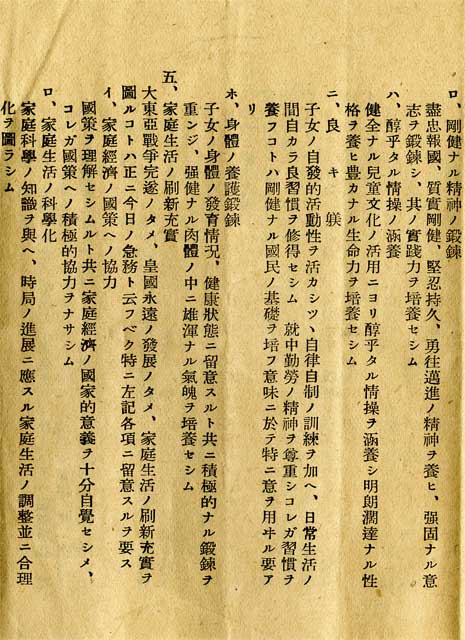 ロ、剛健ナル精神ノ鍛鍊
盡忠報國、質實剛健、堅忍持久、勇往邁進ノ精神ヲ養ヒ、强固ナル意
志ヲ鍛鍊シ、其ノ實踐力ヲ培養セシム
ハ、醇乎タル情操ノ涵養
健全ナル兒童文化ノ活用ニヨリ醇乎タル情操ヲ涵養シ明朗濶達ナル性
格ヲ養ヒ豊カナル生命力ヲ培養セシム
ニ、良キ躾
子女ノ自發的活動性ヲ活カシツヽ自律自制ノ訓練ヲ加ヘ、日常生活ノ
間自カラ良習慣ヲ修得セシム　就中勤勞ノ精神ヲ尊重シコレガ習慣ヲ
養フコトハ剛健ナル國民ノ基礎ヲ培フ意味ニ於テ特ニ意ヲ用ヰル要ア
リ
ホ、身體ノ養護鍛鍊
子女ノ身體ノ發育情況、健康狀態ニ留意スルト共ニ積極的ナル鍛鍊ヲ
重ンジ、强健ナル肉體ノ中ニ雄渾ナル氣魄ヲ培養セシム
五、家庭生活ノ刷新充實
大東亞戰爭完遂ノタメ、皇國永遠ノ發展ノタメ、家庭生活ノ刷新充實ヲ
圖ルコトハ正ニ今日ノ急務ト云フベク特ニ左記各項ニ留意スルヲ要ス
イ、家庭經濟ノ國策ヘノ協力
國策ヲ理解セシムルト共ニ家庭經濟ノ國家的意義ヲ十分自覺セシメ、
コレガ國策ヘノ積極的協力ヲナサシム
ロ、家庭生活ノ科學化
家庭科學ノ知識ヲ與ヘ、時局ノ進展ニ應スル家庭生活ノ調整並ニ合理
化ヲ圖ラシム